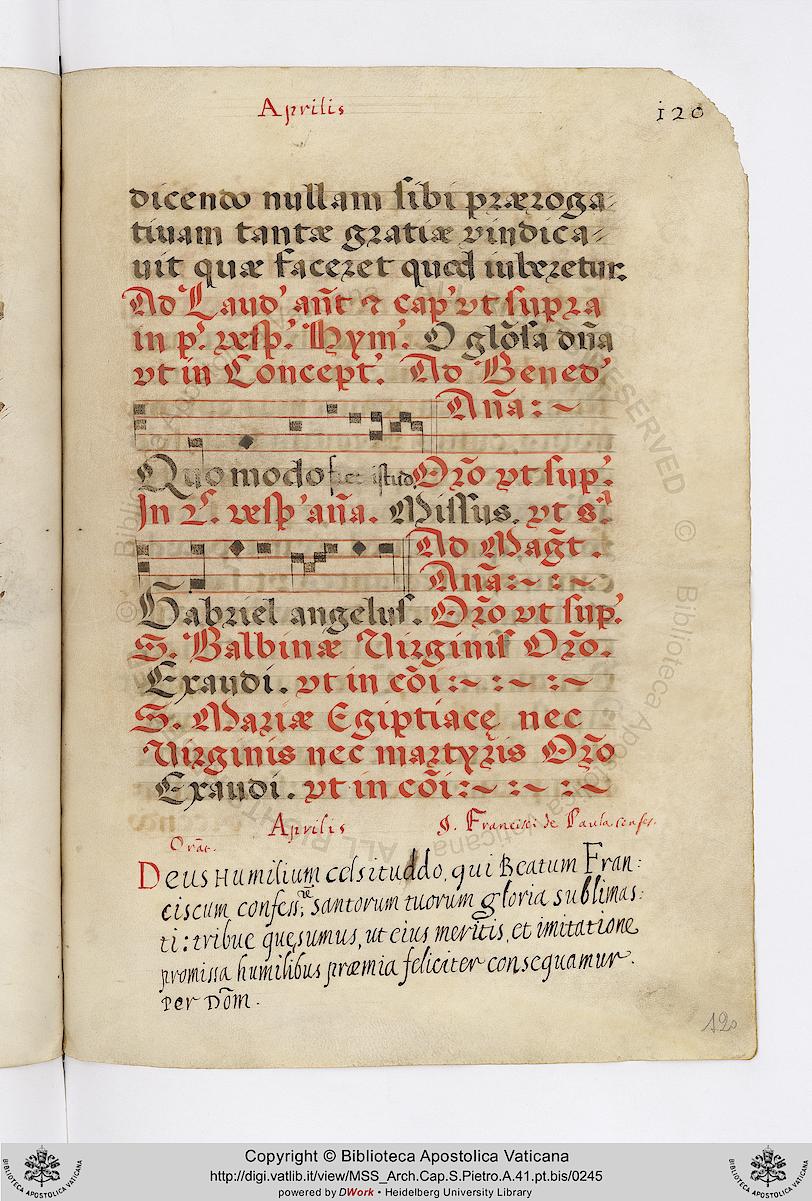 Aprilis
120
dicendo nullam sibi præroga-
tiuam tantæ gratiæ vindica-
uit quæ faceret quod iuberetur.
Ad Laud' añt ⁊ cap' vt supra
in p.' vesp.' Hym'. O glõsa dña
vt in Concept.' Ad Bened'
Aña: ~
Quomodo fiet istud Orõ vt sup.'
In 2.' vesp' aña. Missus. vt s.ª
Ad Mag̃t.
Aña: ~ : ~
Gabriel angelus. Orõ vt sup.'
S. Balbinæ Virginis Orõ.
Exaudi. vt in cõi :~ :~ :~
S. Mariæ Egiptiacę nec
Virginis nec martyris Orõ
Exaudi. vt in cõi :~ :~ :~
Aprilis S. Francisci de Paula confes.
Orat.
Deus Humilium celsituddo, qui Beatum Fran:
ciscum confess: santorum tuorum gloria sublimas:
ti: tribue quęsumus, ut eius meritis, et imitatione
promissa humilibus præmia feliciter consequamur.
Per Dõm.
120
Copyright © Biblioteca Apostolica Vaticana
http://digi.vatlib.it/view/MSS_Arch.Cap.S.Pietro.A.41.pt.bis/0245
powered by DWork • Heidelberg University Library
BIBLIOTECA APOSTOLICA VATICANA
BIBLIOTECA APOSTOLICA VATICANA